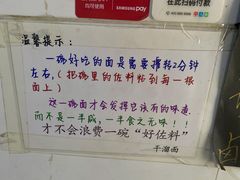 SAMSUNG pay
在此扫码
温馨提示：
一碗好吃的面是需要搅拌2分钟
左右，（把碗里的佐料粘到每一根
面上）
这一碗面才会发挥它该有的味道
而不是一半咸，一半食之无味！！
才不会浪费一碗“好佐料”
干溜面